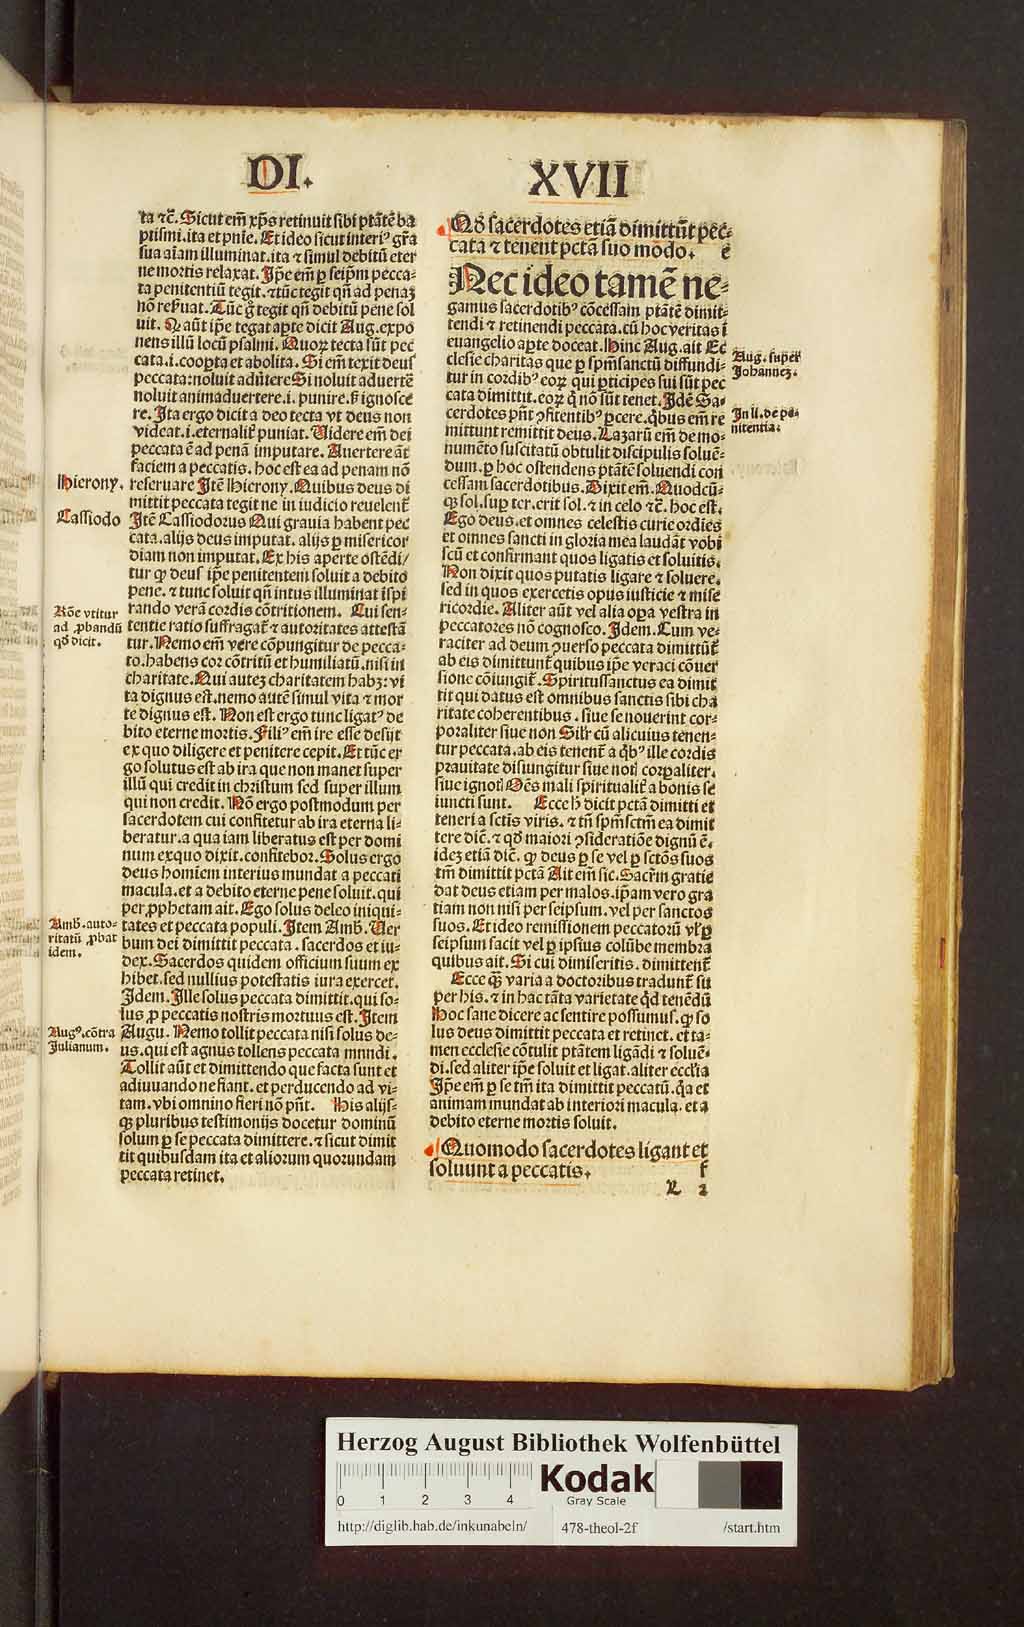 DI.
XVII
ta ⁊c̃. Sicut em̃ xp̃s retinuit sibi ptãtẽ ba
ptismi. ita et pn̄ie. Et ideo sicut interiꝰ gr̃a
sua aĩam illuminat. ita ⁊ simul debitũ eter
ne mortis relaxat. Ip̃e em̃ ꝑ seip̃m pecca-
ta penitentiũ tegit. ⁊tũc tegit qñ ad penaʒ
nõ reẜuat. Tũc g̊ tegit qñ debitũ pene sol
uit. Q̃ aũt ip̃e tegat aꝑte dicit Aug. expo
nens illũ locũ psalmi. Quoꝝ tecta sũt pec
cata. i. cooꝑta et abolita. Si em̃ texit deus
peccata: noluit adũtere Si noluit aduertẽ
noluit animaduertere. i. punire. ẜ ignosce
re. Ita ergo dicit a deo tecta vt deus non
videat. i. eternalit̃ puniat. Uidere em̃ dei
peccata ẽ ad penã imputare. Auertere āt
faciem a peccatis. hoc est ea ad penam nõ
Hierony.
reseruare Itẽ Hierony. Quibus deus di
mittit peccata tegit ne in iudicio reuelent᷑
Cassiodo
Itẽ Cassiodorus Qui grauia habent pec
cata. alijs deus imputat. alijs ꝑ misericor
diam non imputat. Ex his aperte ostẽdi/
tur ꝙ deus ip̃e penitentem soluit a debito
pene. ⁊ tunc soluit qñ intus illuminat ĩspi
rando verã cordis cõtritionem. Cui sen-
Rõe vtitur
ad ꝓbandũ
qđ dicit.
tentie ratio suffragat᷑ ⁊ autoritates attestã
tur. Nemo em̃ vere cõpungitur de pecca-
to. habens cor cõtritũ et humiliatũ. nisi in
charitate. Qui autez charitatem habʒ: vi
ta dignus est. nemo autẽ simul vita ⁊ mor
te dignus est. Non est ergo tunc ligatꝰ de
bito eterne mortis. Filiꝰ em̃ ire esse desijt
ex quo diligere et penitere cepit. Et tũc er
go solutus est ab ira que non manet super
illũ qui credit in christum sed super illum
qui non credit. Nõ ergo postmodum per
sacerdotem cui confitetur ab ira eterna li-
beratur. a qua iam liberatus est per domi
num exquo dixit. confitebor. Solus ergo
deus homiem interius mundat a peccati
macula. et a debito eterne pene soluit. qui
per ꝓphetam ait. Ego solus deleo iniqui-
Amb̃. auto-
ritatũ ꝓbat
idem.
tates et peccata populi. Item Amb̃. Uer
bum dei dimittit peccata. sacerdos et iu-
dex. Sacerdos quidem officium suum ex
hibet. sed nullius potestatis iura exercet.
Idem. Ille solus peccata dimittit. qui so-
lus ꝓ peccatis nostris mortuus est. Item
Augꝰ. cõtra
Julianum.
Augu. Nemo tollit peccata nisi solus de-
us. qui est agnus tollens peccata mnndi.
Tollit aũt et dimittendo que facta sunt et
adiuuando ne fiant. et perducendo ad vi-
tam. vbi omnino fieri nõ pñt. His alijs-
ꝙ pluribus testimonijs docetur dominũ
solum ꝑ se peccata dimittere. ⁊ sicut dimit
tit quibusdam ita et aliorum quorundam
peccata retinet.
Qđ sacerdotes etiã dimittũt pec-
cata ⁊ tenent pctã suo modo. e
Nec ideo tamẽ ne-
gamus sacerdotibꝰ cõcessam ptãtẽ dimit-
tendi ⁊ retinendi peccata. cũ hoc veritas ĩ
euangelio aꝑte doceat. Hinc Aug. ait Ec
Aug. super
Johannez.
clesie charitas que ꝑ sp̃m sanctũ diffundi-
tur in cordibꝰ eoꝝ qui ꝑticipes sui sũt pec
cata dimittit. eoꝝ q̃ nõ sũt tenet. Idẽ Sa-
In li. de pe-
nitentia:
cerdotes pñt ꝯfitentibꝰ ꝑcere. qͥbus em̃ re
mittunt remittit deus. Lazarũ em̃ de mo-
numẽto suscitatũ obtulit discipulis soluẽ-
dum. ꝑ hoc ostendens ptãtẽ soluendi con
cessam sacerdotibus. Dixit em̃. Quodcũ-
ꝙ sol. suꝑ ter. erit sol. ⁊ in celo ⁊c̃. hoc est.
Ego deus. et omnes celestis curie ordĩes
et omnes sancti in gloria mea laudãt vobi
scũ et confirmant quos ligatis et soluitis.
Non dixit quos putatis ligare ⁊ soluere.
sed in quos exercetis opus iusticie ⁊ mise
ricordie. Aliter aũt vel alia oꝑa vestra in
peccatores nõ cognosco. Idem. Cum ve-
raciter ad deum ꝯuerso peccata dimittũt᷑
ab eis dimittunt᷑ quibus ip̃e veraci cõuer
sione cõiungit᷑. Spiritussanctus ea dimit
tit qui datus est omnibus sanctis sibi cha
ritate coherentibus. siue se nouerint cor-
poraliter siue non Sil̃r cũ alicuius tenen-
tur peccata. ab eis tenent᷑ a qͥbꝰ ille cordis
prauitate disiungitur siue noti corꝑaliter.
siue ignoti Oẽs mali spiritualit᷑ a bonis se
iuncti sunt. Ecce h̃ dicit pctã dimitti et
teneri a sctĩs viris. ⁊ tñ sp̃m sctm̃ ea dimit
tere dic̃. ⁊ qđ maiori ꝯsideratiõe dignũ ẽ.
idez etiã dic̃. ꝙ deus ꝑ se vel ꝑ sctõs suos
tm̃ dimittit pctã Ait em̃ sic. Sacr̃m gratie
dat deus etiam per malos. ip̃am vero gra
tiam non nisi per seipsum. vel per sanctos
suos. Et ideo remissionem peccatorũ vl̃ ꝑ
seipsum facit vel ꝑ ipsius colũbe membra
quibus ait. Si cui dimiseritis. dimittent᷑
Ecce q̃ʒ varia a doctoribus tradunt᷑ su
per his. ⁊ in hac tãta varietate qͥd tenẽdũ
Hoc sane dicere ac sentire possumus. ꝙ so
lus deus dimittit peccata et retinet. et ta-
men ecclesie cõtulit ptãtem ligãdi ⁊ soluẽ-
di. sed aliter ip̃e soluit et ligat. aliter eccl̃ia
Ip̃e em̃ ꝑ se tm̃ ita dimittit peccatũ. q̃a et
animam mundat ab interiori macula. et a
debito eterne mortis soluit.
Quomodo sacerdotes ligant et
soluunt a peccatis. f
R 2
Herzog August Bibliothek Wolfenbüttel
0 1 2 3 4
Kodak
Gray Scale
http://diglib.hab.de/inkunabeln/ 478-theol-2f /start.htm